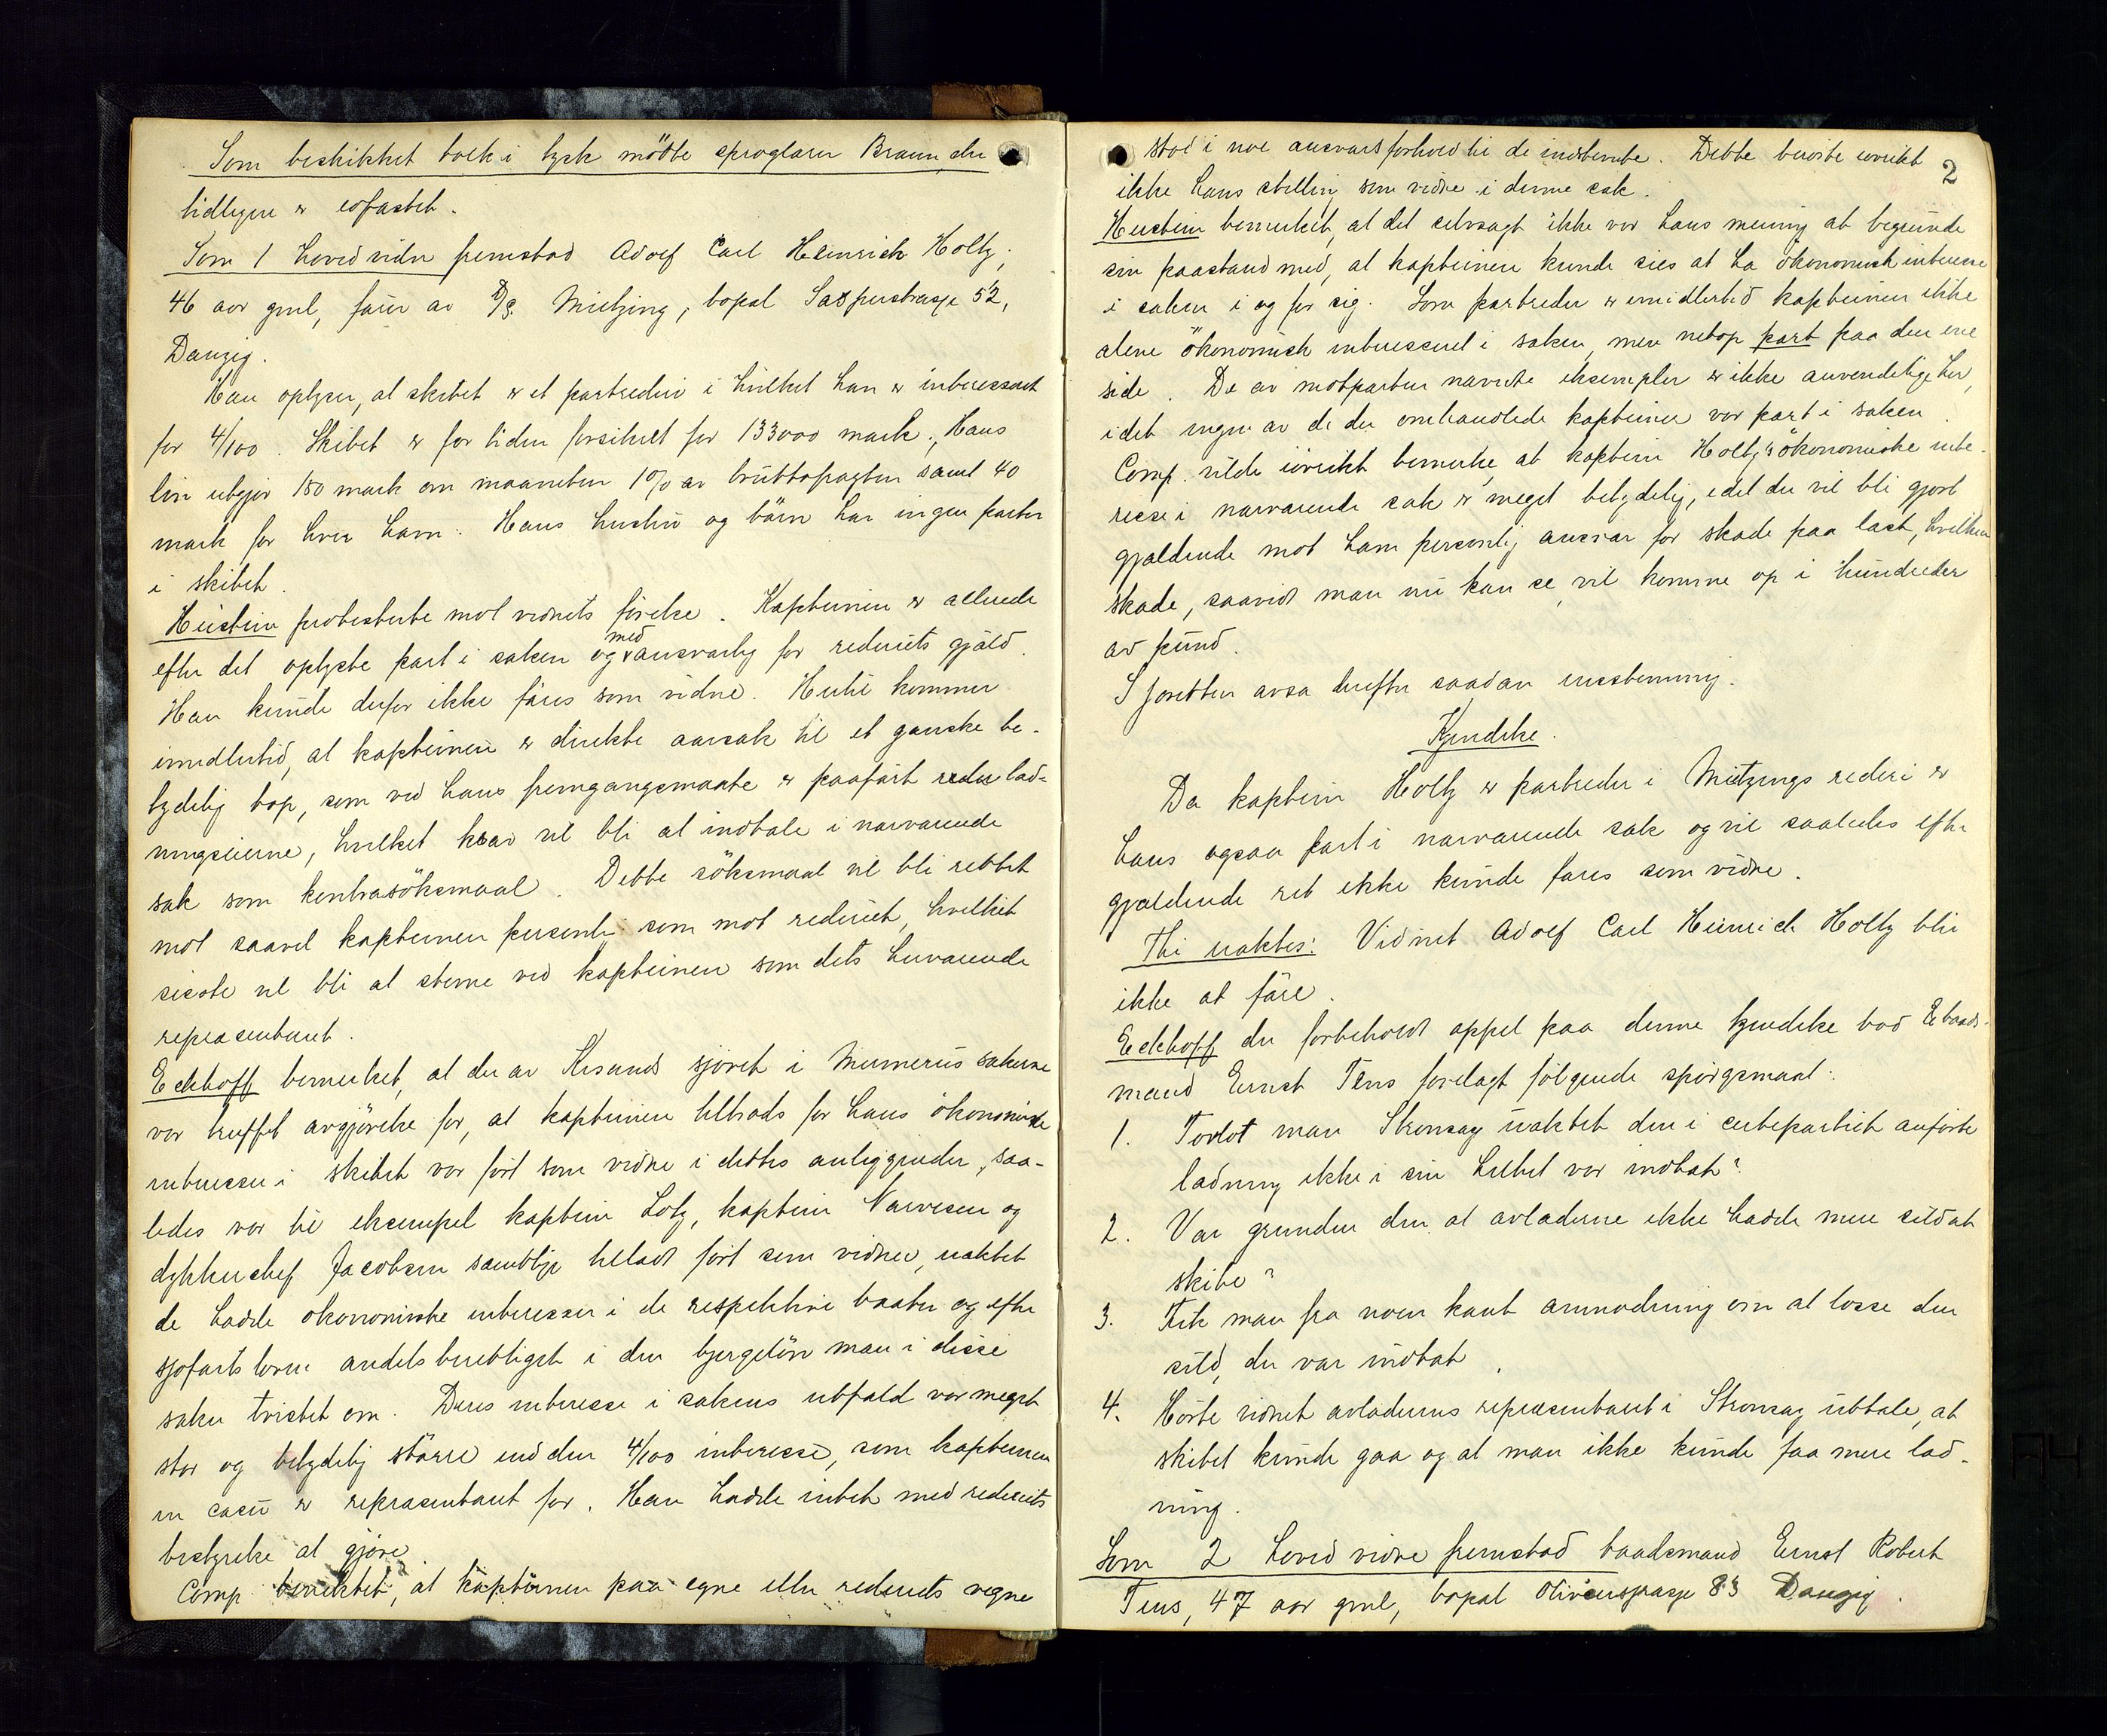 Som beskikket tolk i tysk mödte sproglærer Braun, der
tidligere er edfæstet.
Som 1 hovedvidne fremstod Adolf Carl Heinrich Holtz,
46 aar gml, förer av D/S. Mietzing, bopæl Sasperstrasse 52,
Danzig.
Han oplyser, at skibet er et partrederi i hvilket han er interessert
for 4/100. Skibet er for tiden forsikret for 133000 mark. Hans
lön utgjör 150 mark om maaneden 1% av bruttofragten samt 40
mark for hver havn. Hans hustru og börn har ingen parter
i skibet.
Heistein protesterte mot vidnets förelse. Kapteinen er allerede
efter det oplyste part i saken og medansvarlig for rederiets gjæld.
Han kunde derfor ikke föres som vidne. Hertil kommer
imidlertid, at kapteinen er direkte aarsak til et ganske be-
tydelig tap, som ved hans fremgangsmaate er paafört lad-
ningseierne, hvilket krav vil bli at indtale i nærværende
sak som kontrasöksmaal. Dette söksmaal vil bli rettet
mot saavel kapteinen personlig som mot rederiet, hvilket
sidste vil bli at stevne ved kapteinen som dets herværende
repræsentant.
Eckhoff bemerket, at der av Krsands sjöret i Mimerus sakerne
var truffet avgjörelse for, at kapteinen tiltrods for hans ökonomiske
interesser i skibet var fört som vidne i dettes anliggender, saa-
ledes var til eksempel kaptein Lotz, kaptein Narvesen og
dykkerchef Jacobsen samtlige tillatt fört som vidner, uaktet
de hadde ökonomiske interesser i de respektive baater og efter
sjöfartsloven andelsberettiget i den bjergelön man i disse
saker tvistet om. Deres interesse i sakens utfald var meget
stor og betydelig större end den 4/100 interesse, som kapteinen
in casu er repræsentant for. Han hadde intet med rederiets
bestyrelse at gjöre.
Comp. benektet, at kapteinen paa egne eller rederiets vegne
2
stod i noe ansvarsforhold til de indstevnte. Dette berörte iövrikt
ikke hans stilling som vidne i denne sak.
Heistein bemerket, at det selvsagt ikke var hans mening at begrunde
sin paastand med, at kapteinen kunde sies at ha ökonomisk interesse
i saken i og for sig. Som partreder er imidlertid kapteinen ikke
alene ökonomisk interessert i saken, men netop part paa den ene
side. De av motparten nævnte eksempler er ikke anvendelige her,
idet ingen av de der omhandlede kapteiner var part i saken
Comp. vilde iövrikt bemerke, at kaptein Holtz's ökonomiske inte-
resse i nærværende sak er meget betydelig, idet der vil bli gjort
gjældende mot ham personlig ansvar for skade paa last, hvilken
skade, saavidt man nu kan se, vil komme op i hundreder
av pund.
Sjöretten avsa derefter saadan enstemmig.
Kjendelse.
Da kaptein Holtz er partreder i Mietzings rederi er
hans ogsaa part i nærværende sak og vil saaledes efter
gjældende ret ikke kunde föres som vidne.
Thi eragtes: Vidnet Adolf Carl Heinrich Holtz blir
ikke at före.
Eckhoff der forbeholdt appel paa denne kjendelse bad baads-
mand Ernst Tens forelagt fölgende spörgsmaal:
1. Forlot man Stronsay uaktet den i certepartiet anförte
ladning ikke i sin helhet var indtat?
2. Var grunden den at avladerne ikke hadde mere sild at
skibe?
3. Fik man fra noen kant anmodning om at losse den
sild, der var indtat.
4. Hörte vidnet avladernes repræsentant i Stronsay uttale, at
skibet kunde gaa og at man ikke kunde faa mere lad-
ning.
Som 2 hovedvidne fremstod baadsmand Ernst Robert
Tens, 47 aar gml, bopæl 83 Danzig.